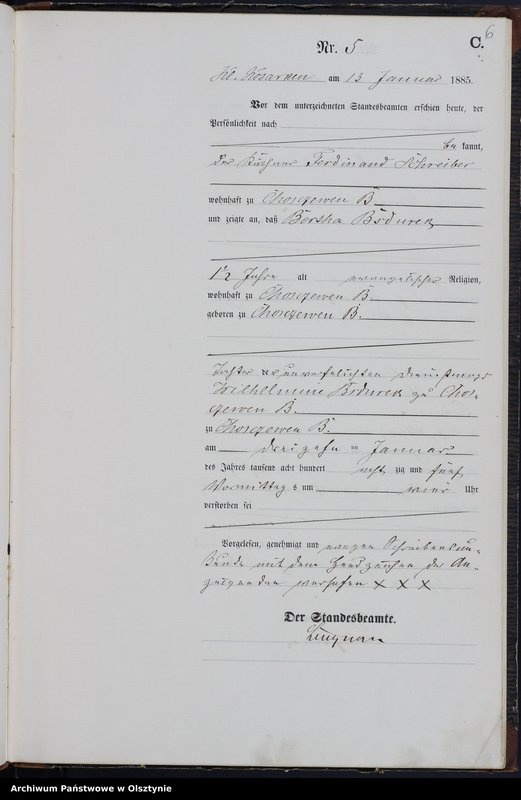 6
Nr. 5
C.
Kl. Kosarken am 13 Januar 1885.
Vor dem unterzeichneten Standesbeamten erschien heute, der
Persönlichkeit nach
be kannt,
der Käthner Ferdinand Schreiber
wohnhaft zu Choszewen B
und zeigte an, daß Bertha Bsdurek
1½ Jahre alt evangelischer Religion,
wohnhaft zu Choszewen B.
geboren zu Choszewen B.
Tochter der unverehelichten Dienstmagd
Wilhelmine Bsdurek zu Chos-
zewen B.
zu Choszewen B.
am dreizehn ten Januar
des Jahres tausend acht hundert acht zig und fünf
Vormittag s um vier Uhr
verstorben sei
Vorgelesen, genehmigt und wegen Schreibensun-
kunde mit dem Handzeichen des An-
zeigenden versehen X X X
Der Standesbeamte.
Archiwum Państwowe w Olsztynie